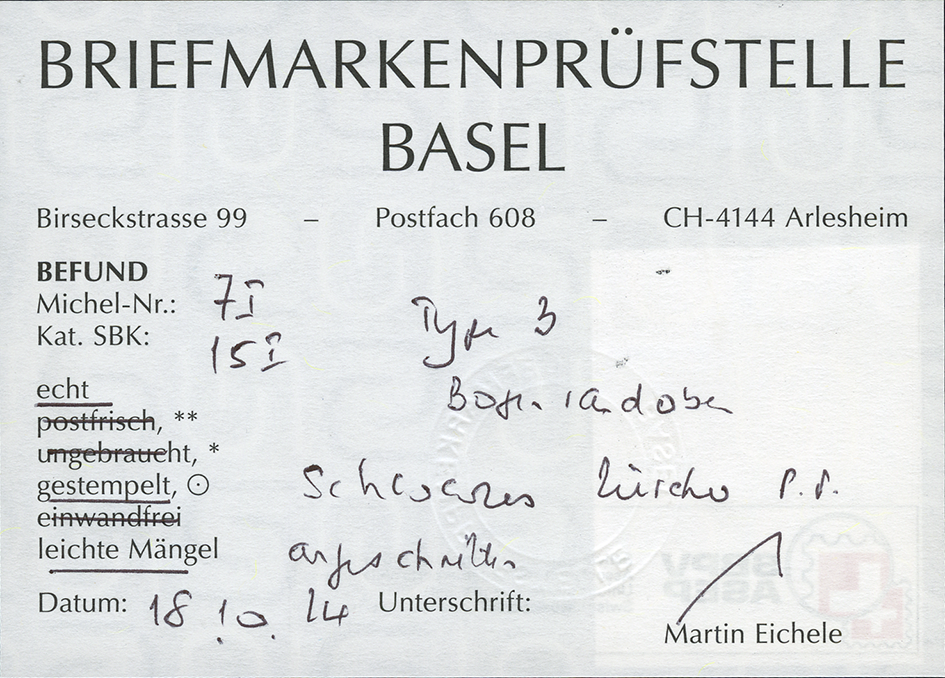 BRIEFMARKENPRÜFSTELLE
BASEL
Birseckstrasse 99 – Postfach 608 – CH-4144 Arlesheim
BEFUND
Michel-Nr.: 7I Type 3
Kat. SBK: 15I
Bogenrand oben
echt
postfrisch, **
ungebraucht, *
gestempelt, ⊙ Schwarzes Zürcher P.P.
einwandfrei
leichte Mängel angeschnitten
Datum: 18.10.24 Unterschrift:
Martin Eichele